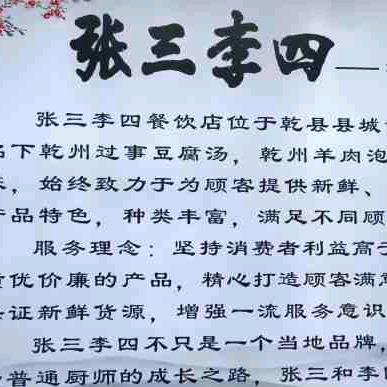 张三李四——
张三李四餐饮店位于乾县县城
名下乾州过事豆腐汤，乾州羊肉泡
，始终致力于为顾客提供新鲜、
产品特色，种类丰富，满足不同顾
服务理念：坚持消费者利益高于
质优价廉的产品，精心打造顾客满意
保证新鲜货源，增强一流服务意识
张三李四不只是一个当地品牌，
普通厨师的成长之路，张三和李四